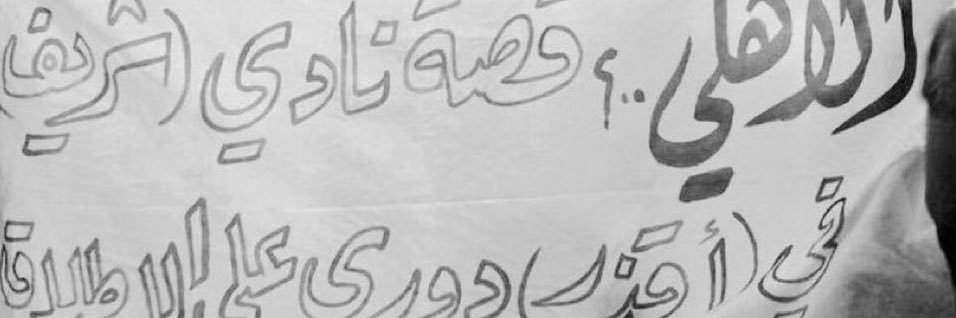 الأهلي .. قصة نادي (شريف
في (أقذر) دوري على الإطلاق